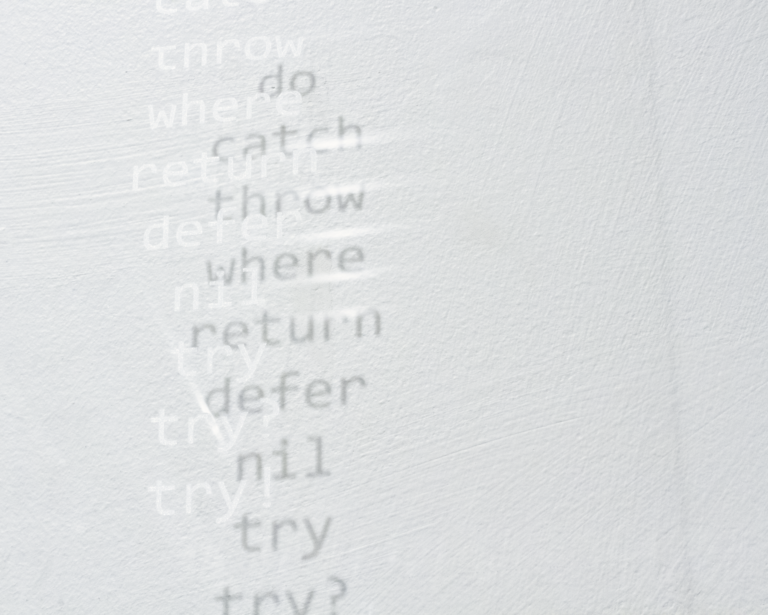 catch
throw
where
return
defer
nil
try
try?
try!
do
catch
throw
where
return
defer
nil
try
try?